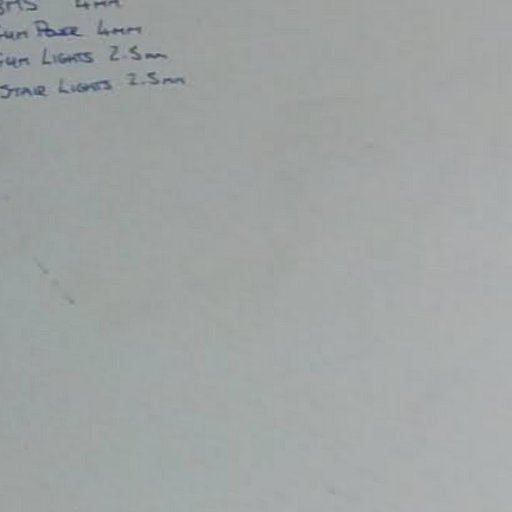 BMS 4mm
Gym Power 4mm
Gym Lights 2.5mm
Stair Lights 2.5mm